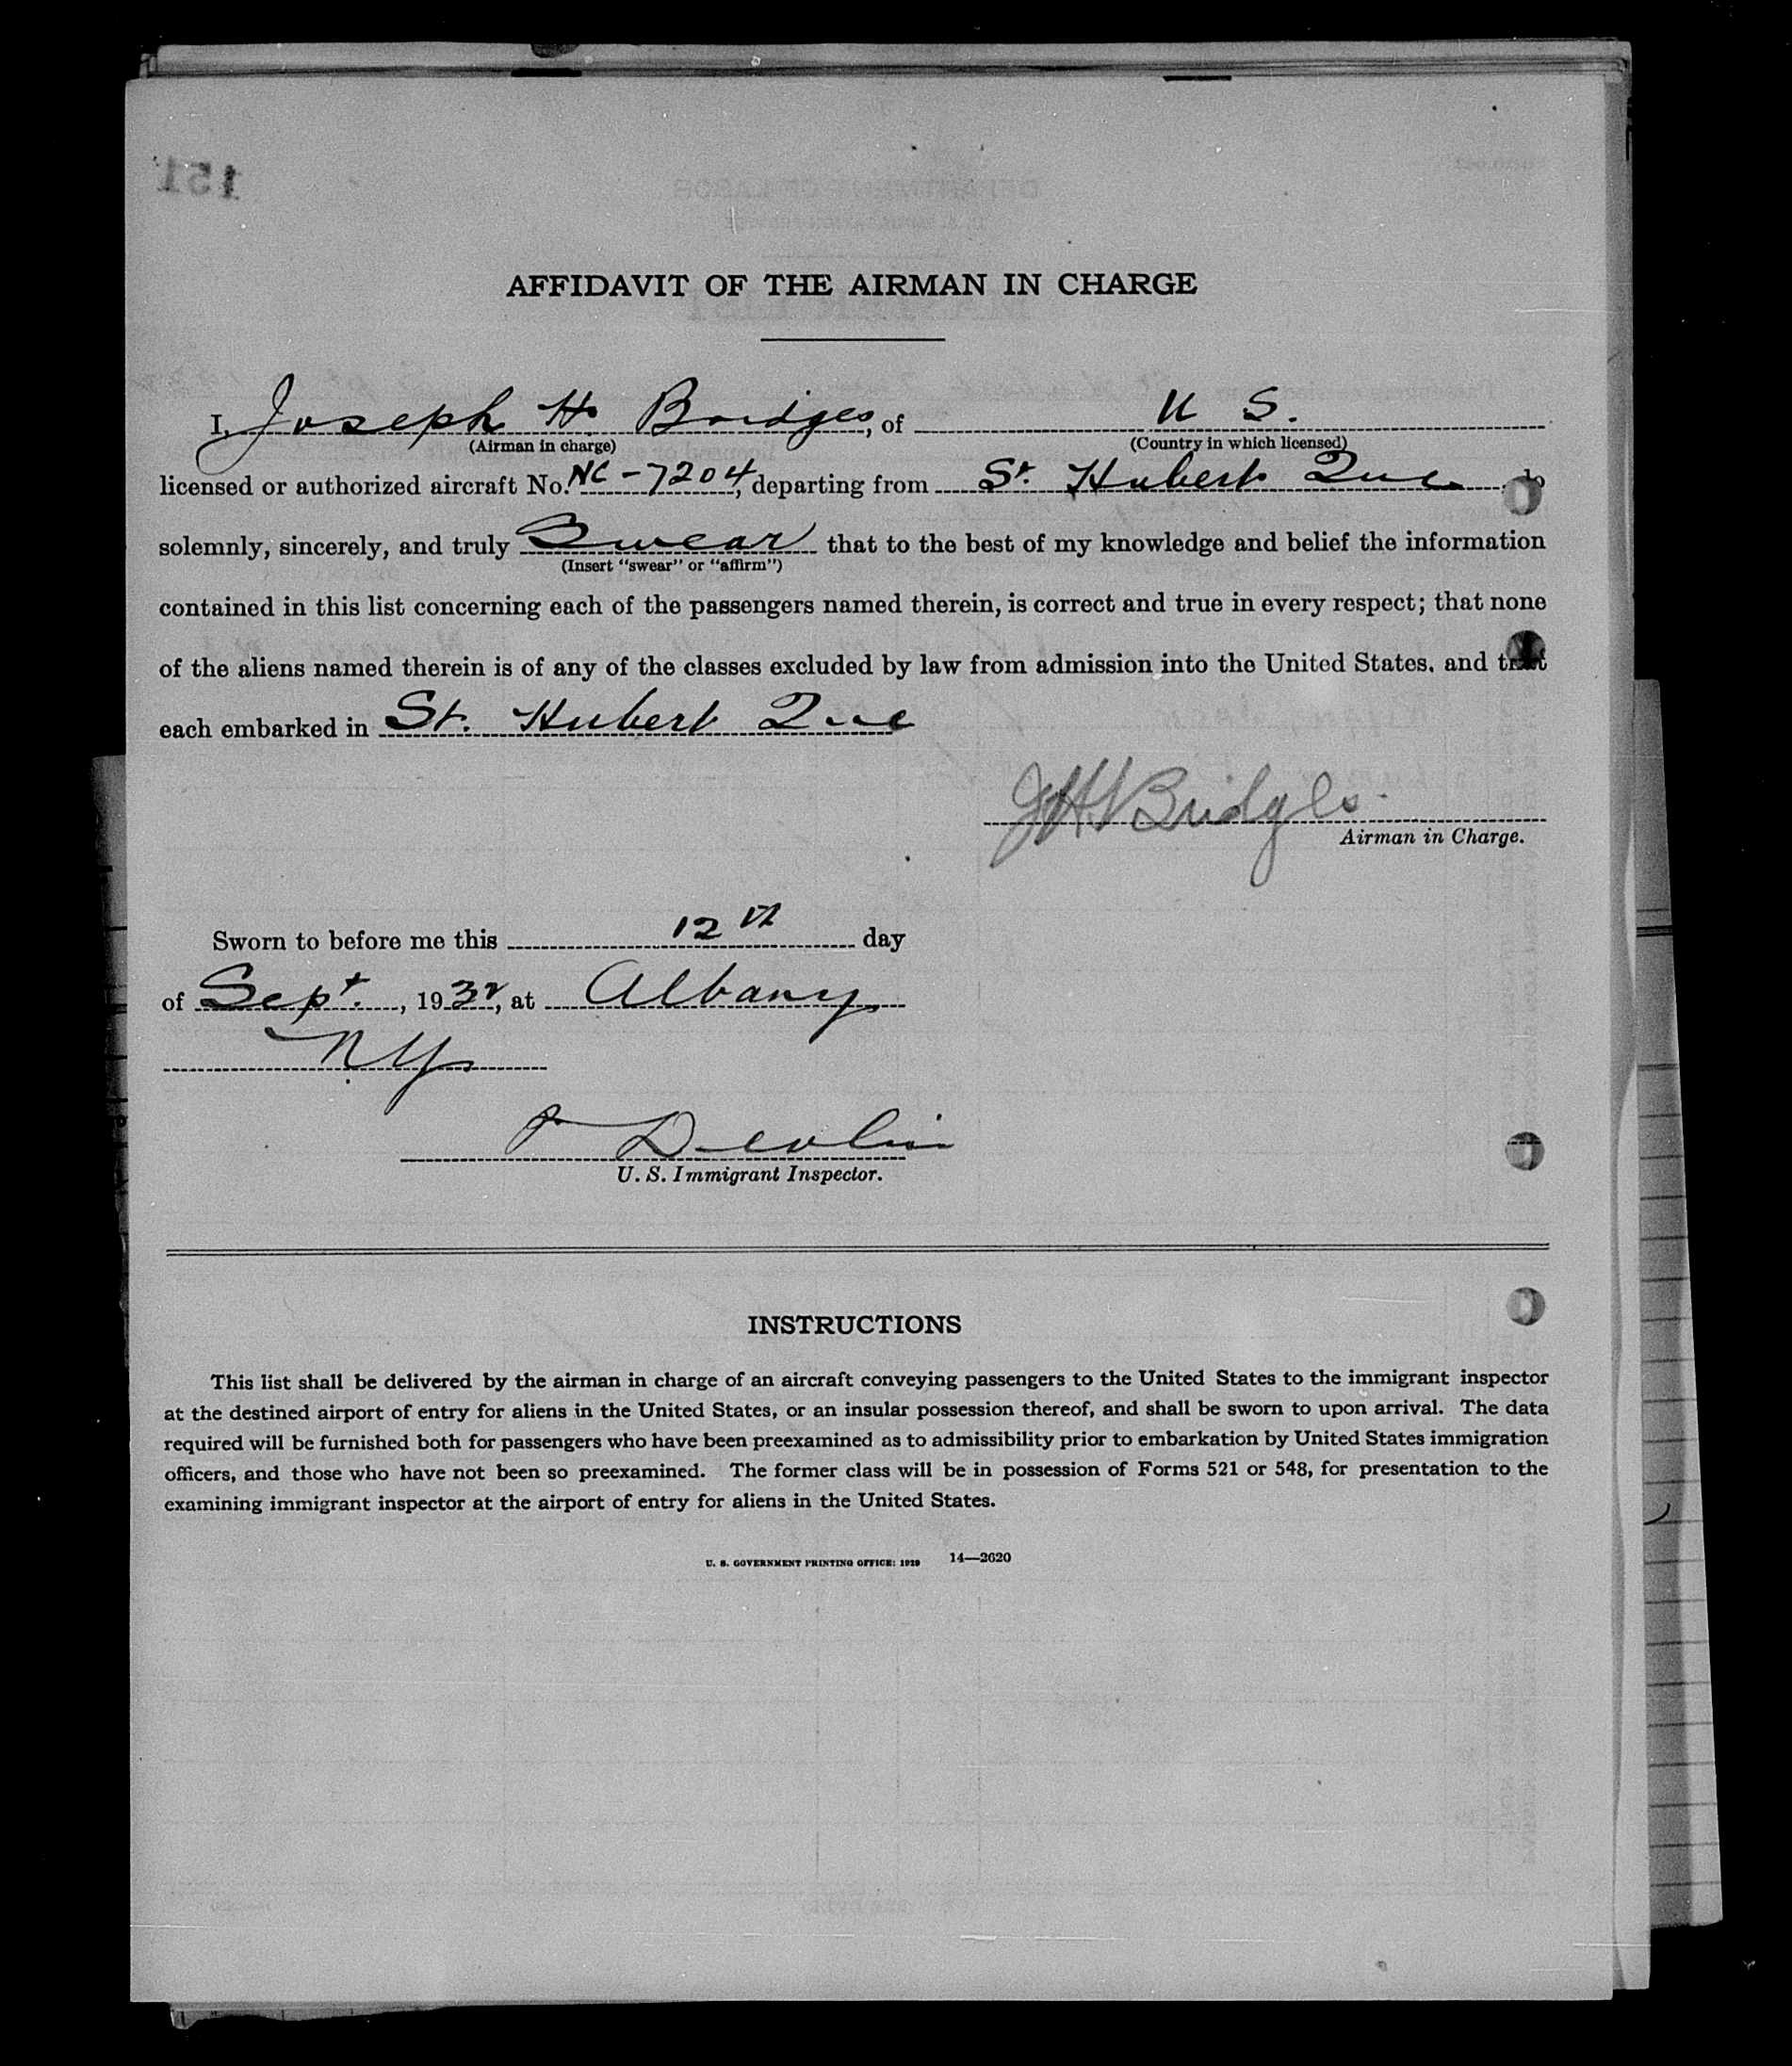 151
AFFIDAVIT OF THE AIRMAN IN CHARGE
I, Joseph H. Bridges, of U S.
(Airman in charge) (Country in which licensed)
licensed or authorized aircraft No. NC-7204, departing from St. Hubert Que, do
solemnly, sincerely, and truly Swear that to the best of my knowledge and belief the information
(Insert "swear" or "affirm")
contained in this list concerning each of the passengers named therein, is correct and true in every respect; that none
of the aliens named therein is of any of the classes excluded by law from admission into the United States, and that
each embarked in St. Hubert Que
JH Bridges
Airman in Charge.
Sworn to before me this 12th day
of Sept., 1932, at Albany
NY
P Devlin
U. S. Immigrant Inspector.
INSTRUCTIONS
This list shall be delivered by the airman in charge of an aircraft conveying passengers to the United States to the immigrant inspector
at the destined airport of entry for aliens in the United States, or an insular possession thereof, and shall be sworn to upon arrival. The data
required will be furnished both for passengers who have been preexamined as to admissibility prior to embarkation by United States immigration
officers, and those who have not been so preexamined. The former class will be in possession of Forms 521 or 548, for presentation to the
examining immigrant inspector at the airport of entry for aliens in the United States.
U. S. GOVERNMENT PRINTING OFFICE: 1929 14—2620